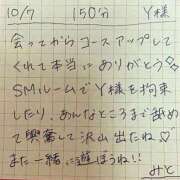 10/7 150分 Y様
会ってからコースアップして
くれて本当にありがとう♡
SMルームでY様を拘束
したり、あんなところまで舐め
て興奮して沢山出たね♡
また一緒に遊ぼうね!!
みと